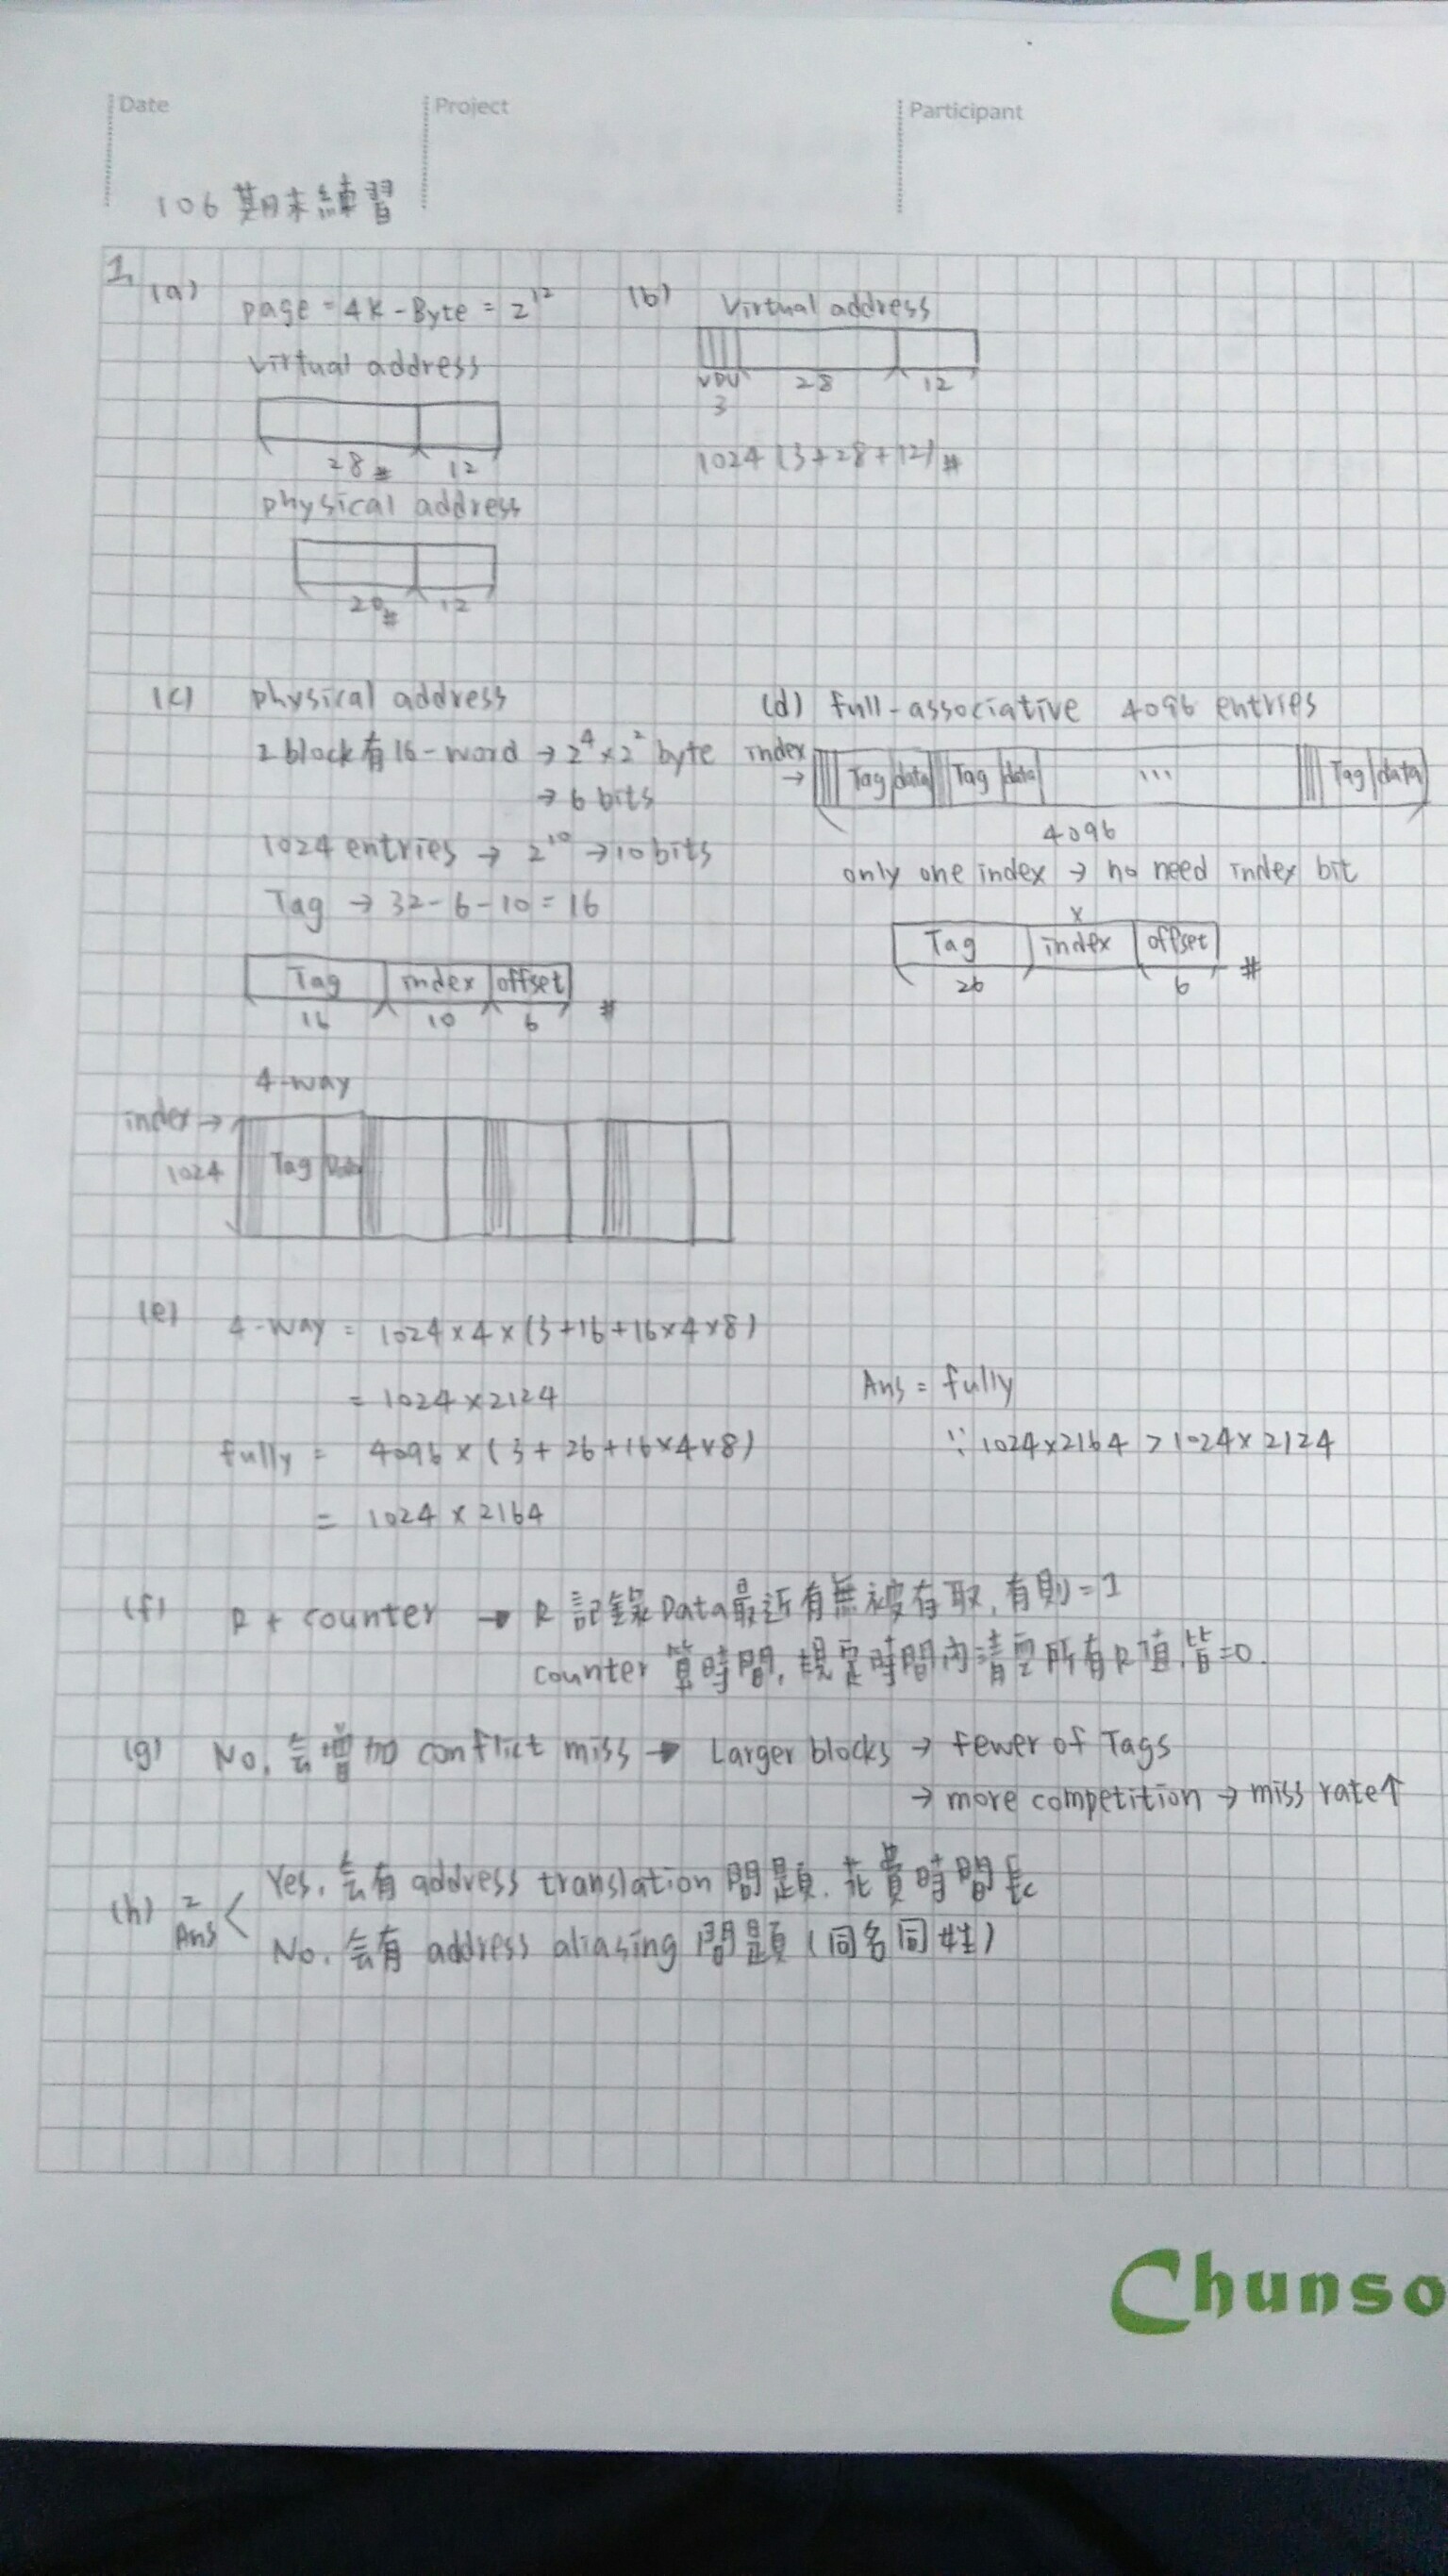 Date
Project
Participant
106 期末練習
1.
(a) page = 4K-Byte = 2^12
virtual address
28# 12
physical address
20# 12
(b) Virtual address
VDU 28 12
3
1024 (3+28+12)#
(c) physical address
1 block 有 16-word → 2^4 × 2^2 byte
→ 6 bits
1024 entries → 2^10 → 10 bits
Tag → 32-6-10 = 16
Tag index offset
16 10 6 #
4-way
index →
1024 Tag Data
(d) full-associative 4096 entries
index → Tag data Tag data ... Tag data
4096
only one index → no need index bit
x
Tag index offset
26 6 #
(e) 4-way = 1024×4×(3+16+16×4×8)
= 1024×2124
fully = 4096 × (3+26+16×4×8)
= 1024 × 2164
Ans = fully
∵ 1024×2164 > 1024×2124
(f) R + counter → R 記錄Data最近有無被存取, 有則=1
counter 算時間, 規定時間內清空所有R值,皆=0.
(g) No, 会增加 conflict miss → Larger blocks → fewer of Tags
→ more competition → miss rate↑
(h) 2 Ans < Yes, 会有 address translation 問題, 花費時間長
No, 会有 address aliasing 問題 (同名同姓)
Chunso